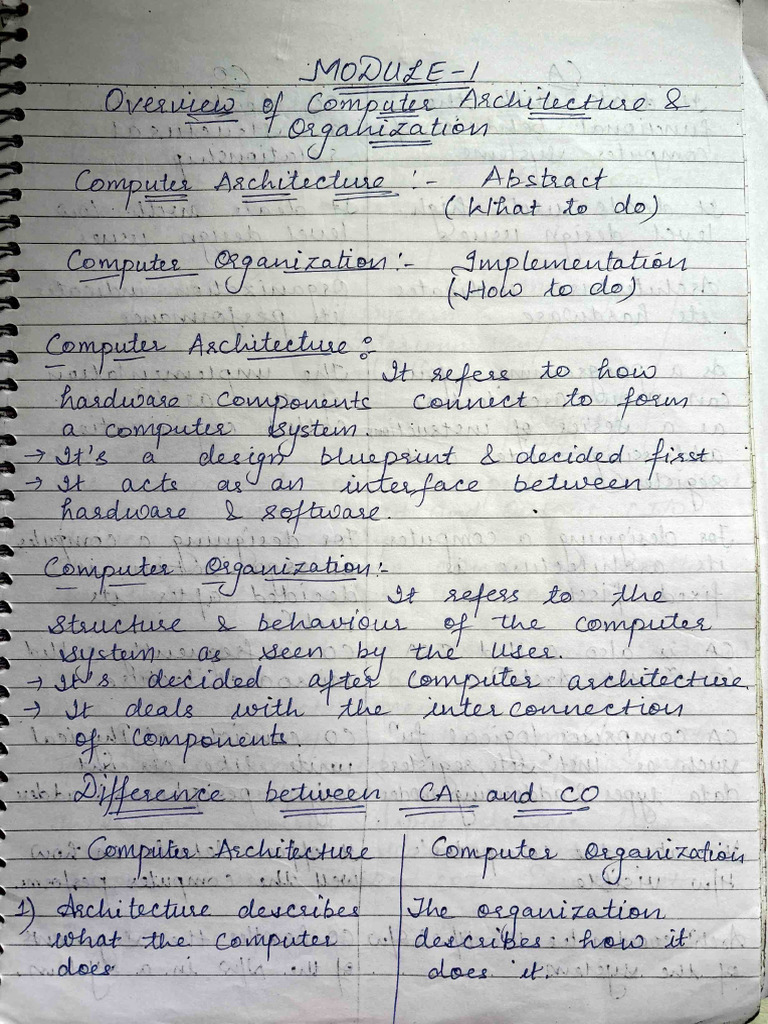 MODULE-1
Overview of Computer Architecture &
Organization
Computer Architecture :- Abstract
(What to do)
Computer Organization:- Implementation
(How to do)
Computer Architecture :-
It refers to how
hardware components connect to form
a computer system.
→ It's a design blueprint & decided first
→ It acts as an interface between
hardware & software.
Computer Organization:-
It refers to the
structure & behaviour of the computer
system as seen by the user.
→ It's decided after computer architecture.
→ It deals with the interconnection
of components.
Difference between CA and CO
Computer Architecture | Computer Organization
1) Architecture describes | The organization
what the computer | describes how it
does | does it.